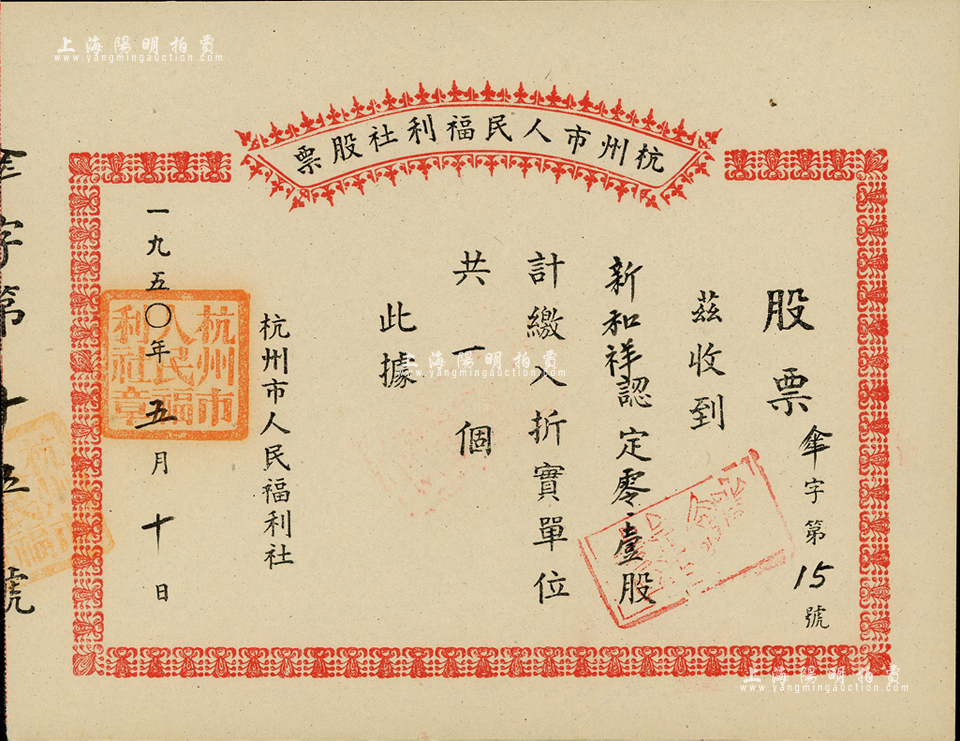 上海陽明拍賣
www.yangmingauction.com
杭州市人民福利社股票
股票
傘字第15號
茲收到
新和祥認定零壹股
計繳入折實單位
共一個
此據
杭州市人民福利社
一九五〇年五月十日
杭州市人民福利社章
字第十五號
上海陽明拍賣
www.yangmingauction.com
上海陽明拍賣
www.yangmingauction.com